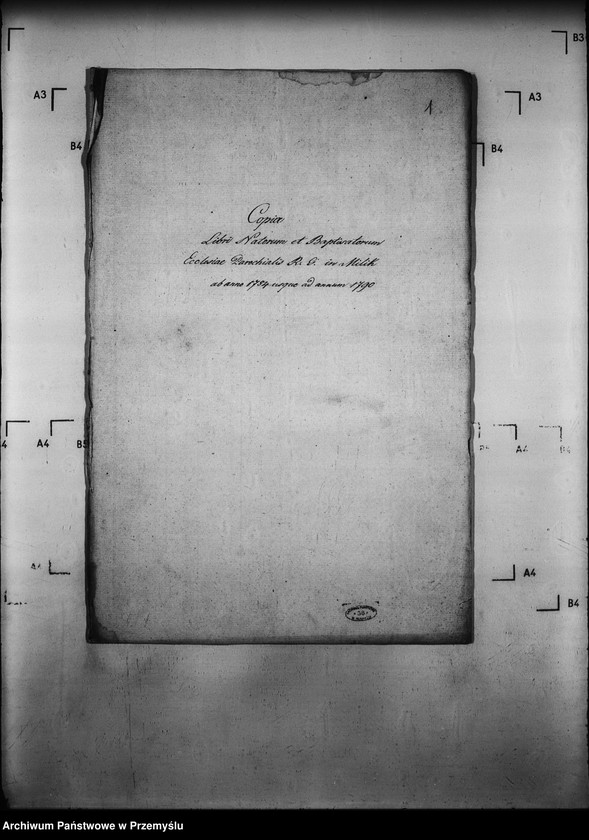 B3
A3
A3
1
B4
B4
Copia
Libri Natorum et Baptisatorum
Ecclesiae Parochialis R. G. in Milik
ab anno 1784 usque ad annum 1790
4
A4
B5
A4
B4
A4
A4
B4
50
Archiwum Państwowe w Przemyślu